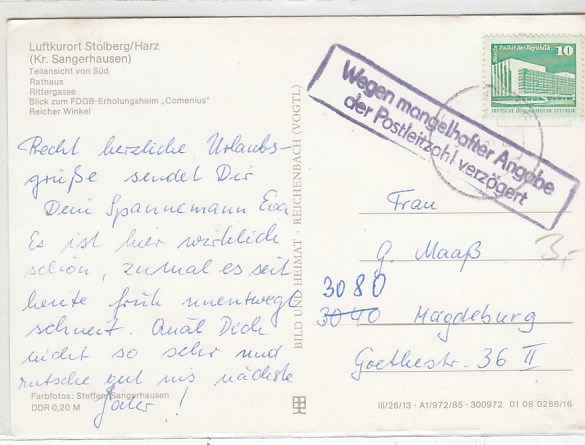 Luftkurort Stolberg/Harz
(Kr. Sangerhausen)
Teilansicht von Süd
Rathaus
Rittergasse
Blick zum FDGB-Erholungsheim „Comenius"
Reicher Winkel
Recht herzliche Urlaubs-
grüße sendet Dir
Dein Spannemann Eva
Es ist hier wirklich
schön, zumal es seit
heute früh unentwegt
schneit. Quäl Dich
nicht so sehr und
rutsche gut ins nächste
Jahr!
Farbfotos: Steffen, Sangerhausen
DDR 0,20 M
BILD UND HEIMAT · REICHENBACH (VOGTL)
Palast der Republik
10
DEUTSCHE DEMOKRATISCHE REPUBLIK
Wegen mangelhafter Angabe
der Postleitzahl verzögert
Frau
G. Maaß
3,-
3080
3040 Magdeburg
Goethestr. 36 II
III/26/13 · A1/972/85 · 300972 01 08 0286/16